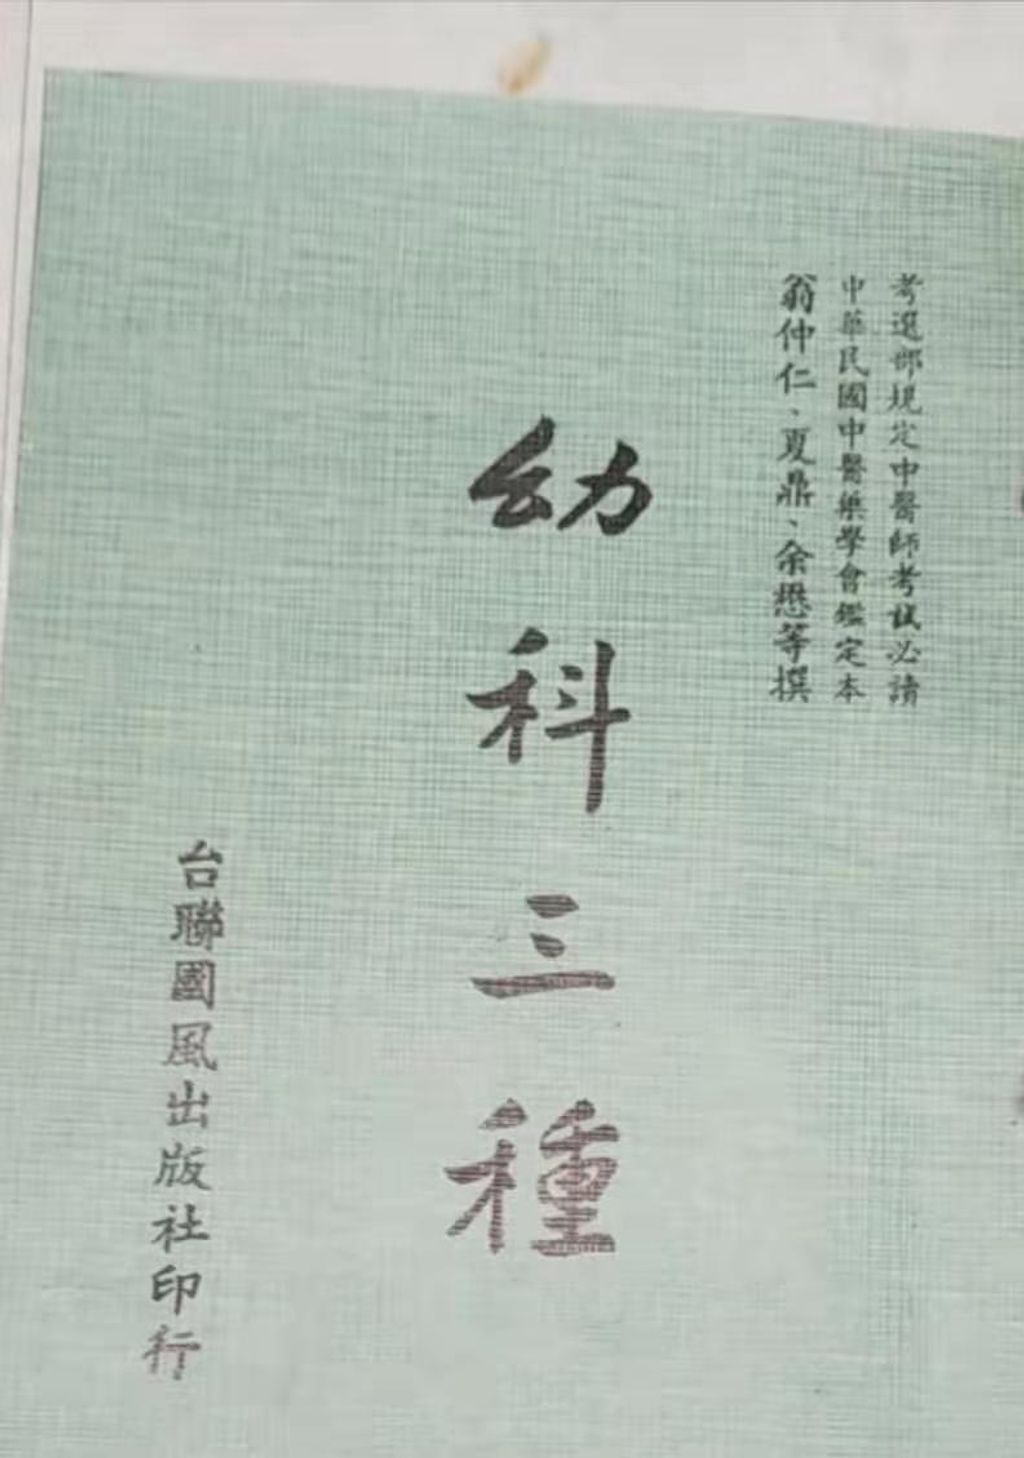 考選部規定中醫師考試必讀
中華民國中醫藥學會鑑定本
翁仲仁、夏鼎、余懋等撰
幼科三種
台聯國風出版社印行